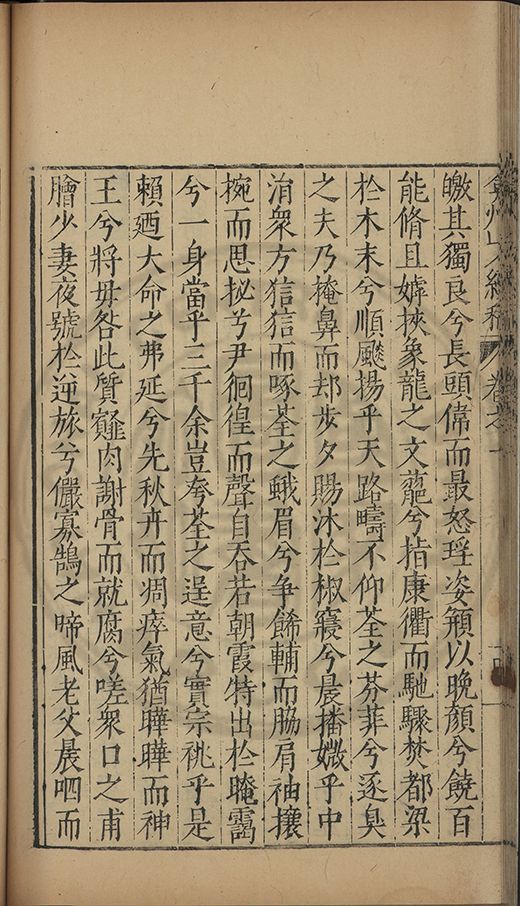 弇州山人續稿 卷之一
皦其獨良兮長頭偉而最怒瑶姿頩以晚顏兮饒百
能脩且嫭挾象龍之文蘢兮指康衢而馳驟焚都梁
於木末兮順飈揚乎天路疇不仰荃之芬菲兮逐臭
之夫乃掩鼻而却步夕賜沐於椒寢兮晨播媺乎中
洧衆方狺狺而啄荃之蛾眉兮争餙輔而脇肩袖攘
捥而思拯兮尹徊徨而聲自吞若朝霞特出於晻靄
兮一身當乎三千余豈夸荃之逞意兮實宗祧乎是
賴廼大命之弗延兮先秋卉而凋瘁氣猶曄曄而神
王兮將毋咎此質寵肉謝骨而就腐兮嗟衆口之甫
膾少妻夜號於逆旅兮儼寡鵠之啼風老父晨呬而